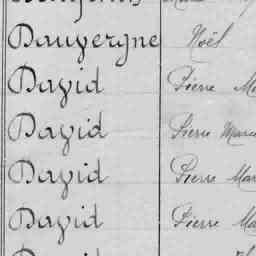 Dauvergne Noël
David Pierre
David Pierre Marce
David Pierre Mar
David Pierre Ma